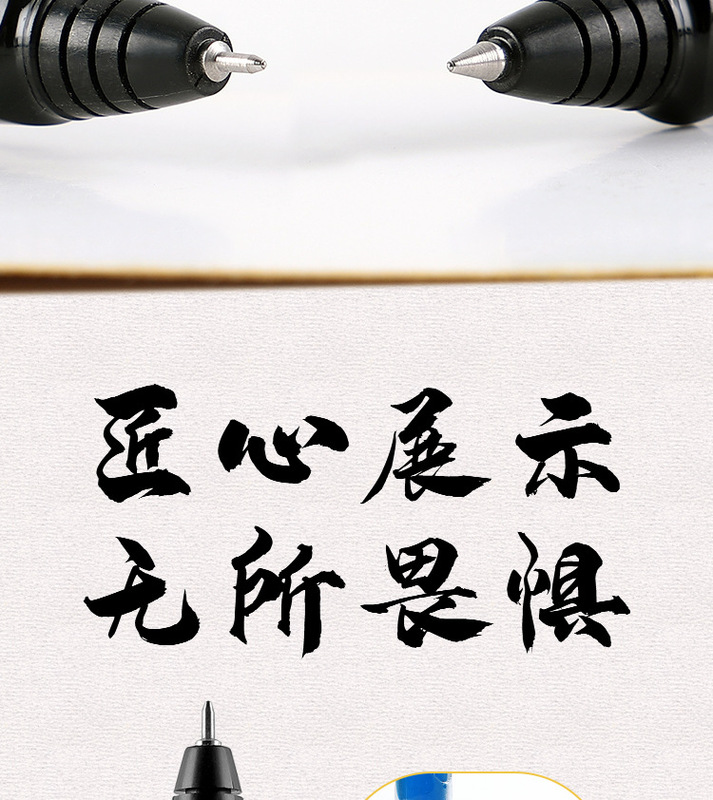 匠心展示
无所畏惧